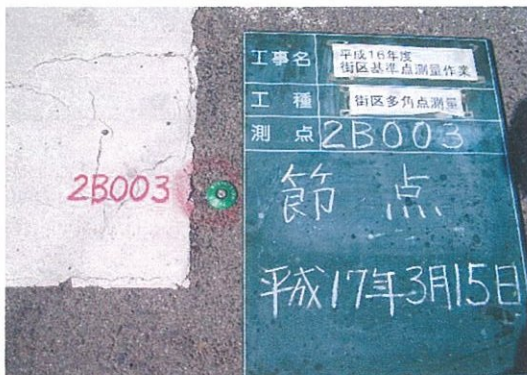 工事名 平成16年度
街区基準点測量作業
工種 街区多角点測量
測点 2B003
2B003
節点
平成17年3月15日